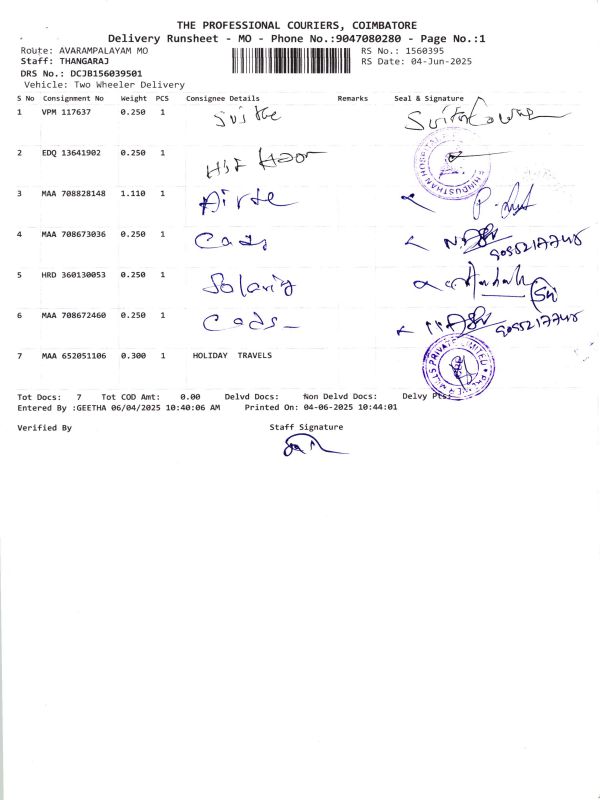 THE PROFESSIONAL COURIERS, COIMBATORE
Delivery Runsheet - MO - Phone No.:9047080280 - Page No.:1
Route: AVARAMPALAYAM MO RS No.: 1560395
Staff: THANGARAJ RS Date: 04-Jun-2025
DRS No.: DCJB156039501
Vehicle: Two Wheeler Delivery
S No Consignment No Weight PCS Consignee Details Remarks Seal & Signature
1 VPM 117637 0.250 1
2 EDQ 13641902 0.250 1
3 MAA 708828148 1.110 1
4 MAA 708673036 0.250 1 Cads
5 HRD 360130053 0.250 1
6 MAA 708672460 0.250 1 Cads
7 MAA 652051106 0.300 1 HOLIDAY TRAVELS
Tot Docs: 7 Tot COD Amt: 0.00 Delvd Docs: Non Delvd Docs: Delvy Pts:
Entered By :GEETHA 06/04/2025 10:40:06 AM Printed On: 04-06-2025 10:44:01
Verified By Staff Signature